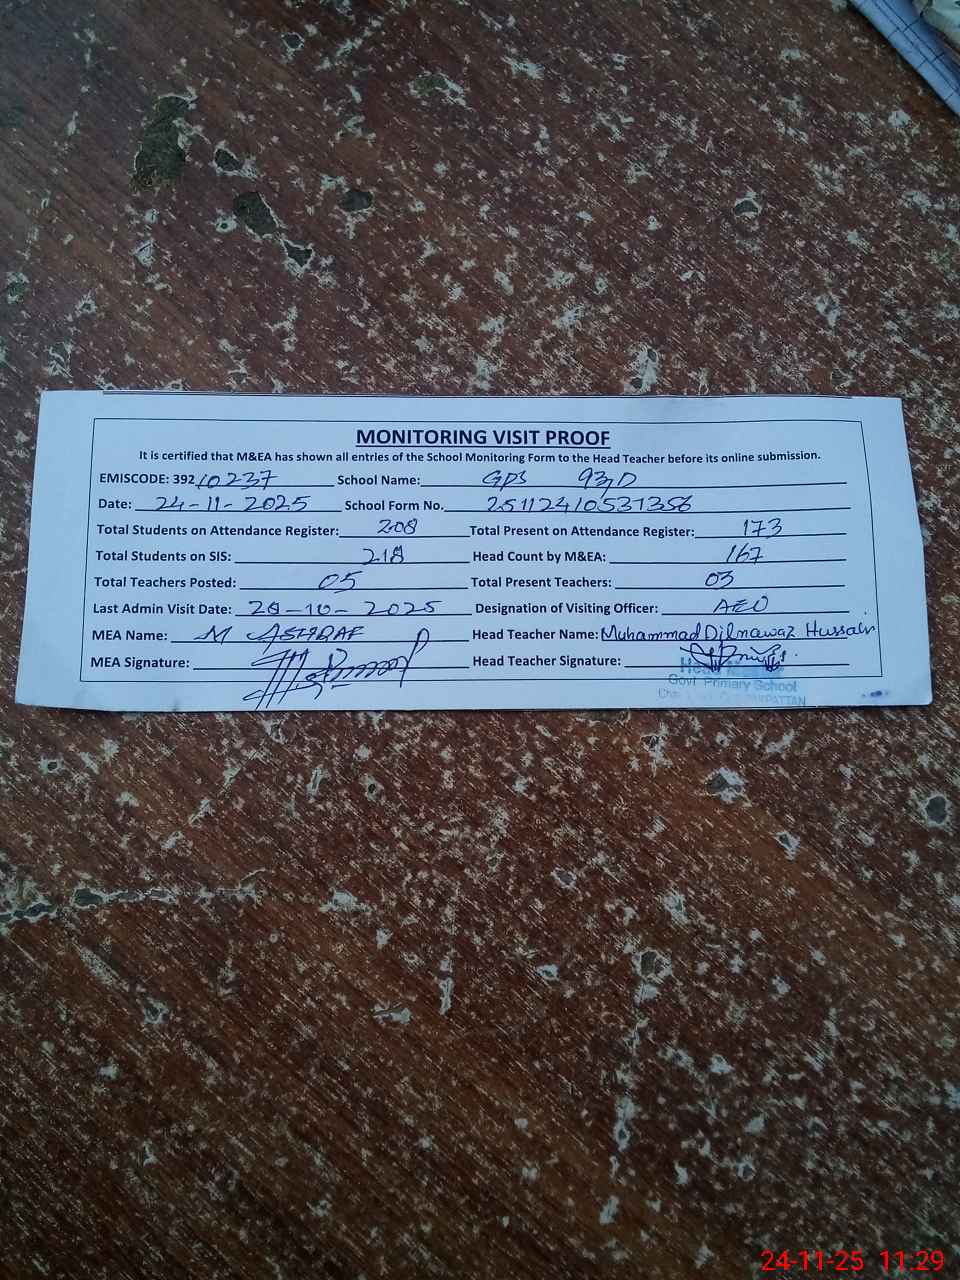 MONITORING VISIT PROOF
It is certified that M&EA has shown all entries of the School Monitoring Form to the Head Teacher before its online submission.
EMISCODE: 39210237 School Name: GPS 93/D
Date: 24-11-2025 School Form No. 25112410531356
Total Students on Attendance Register: 208 Total Present on Attendance Register: 173
Total Students on SIS: 218 Head Count by M&EA: 167
Total Teachers Posted: 05 Total Present Teachers: 03
Last Admin Visit Date: 28-10-2025 Designation of Visiting Officer: AEO
MEA Name: M ASHRAF Head Teacher Name: Muhammad Dilnawaz Hussain
MEA Signature: Head Teacher Signature:
Head
Govt Primary School
PAKPATTAN
24-11-25 11:29